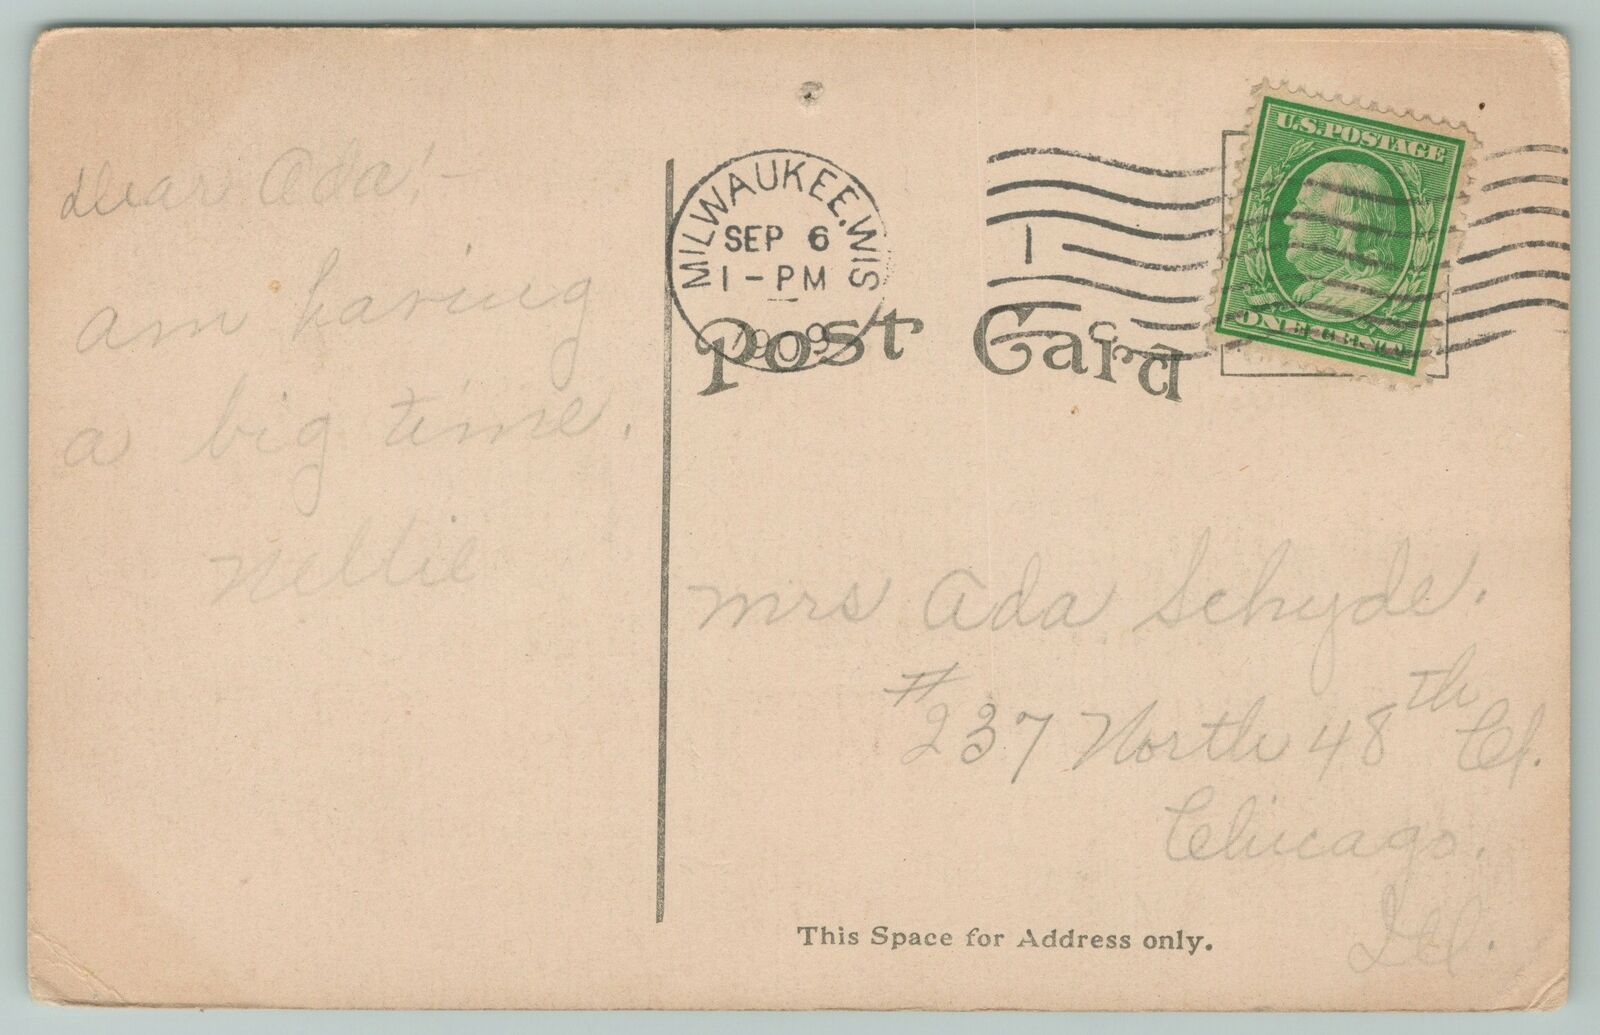 Dear Ada!-
am having
a big time.
Nellie
MILWAUKEE, WIS
SEP 6
1-PM
1909
1
U.S. POSTAGE
ONE CENT
Post Card
Mrs Ada Schyde.
#237 North 48th Ct.
Chicago.
Ill.
This Space for Address only.